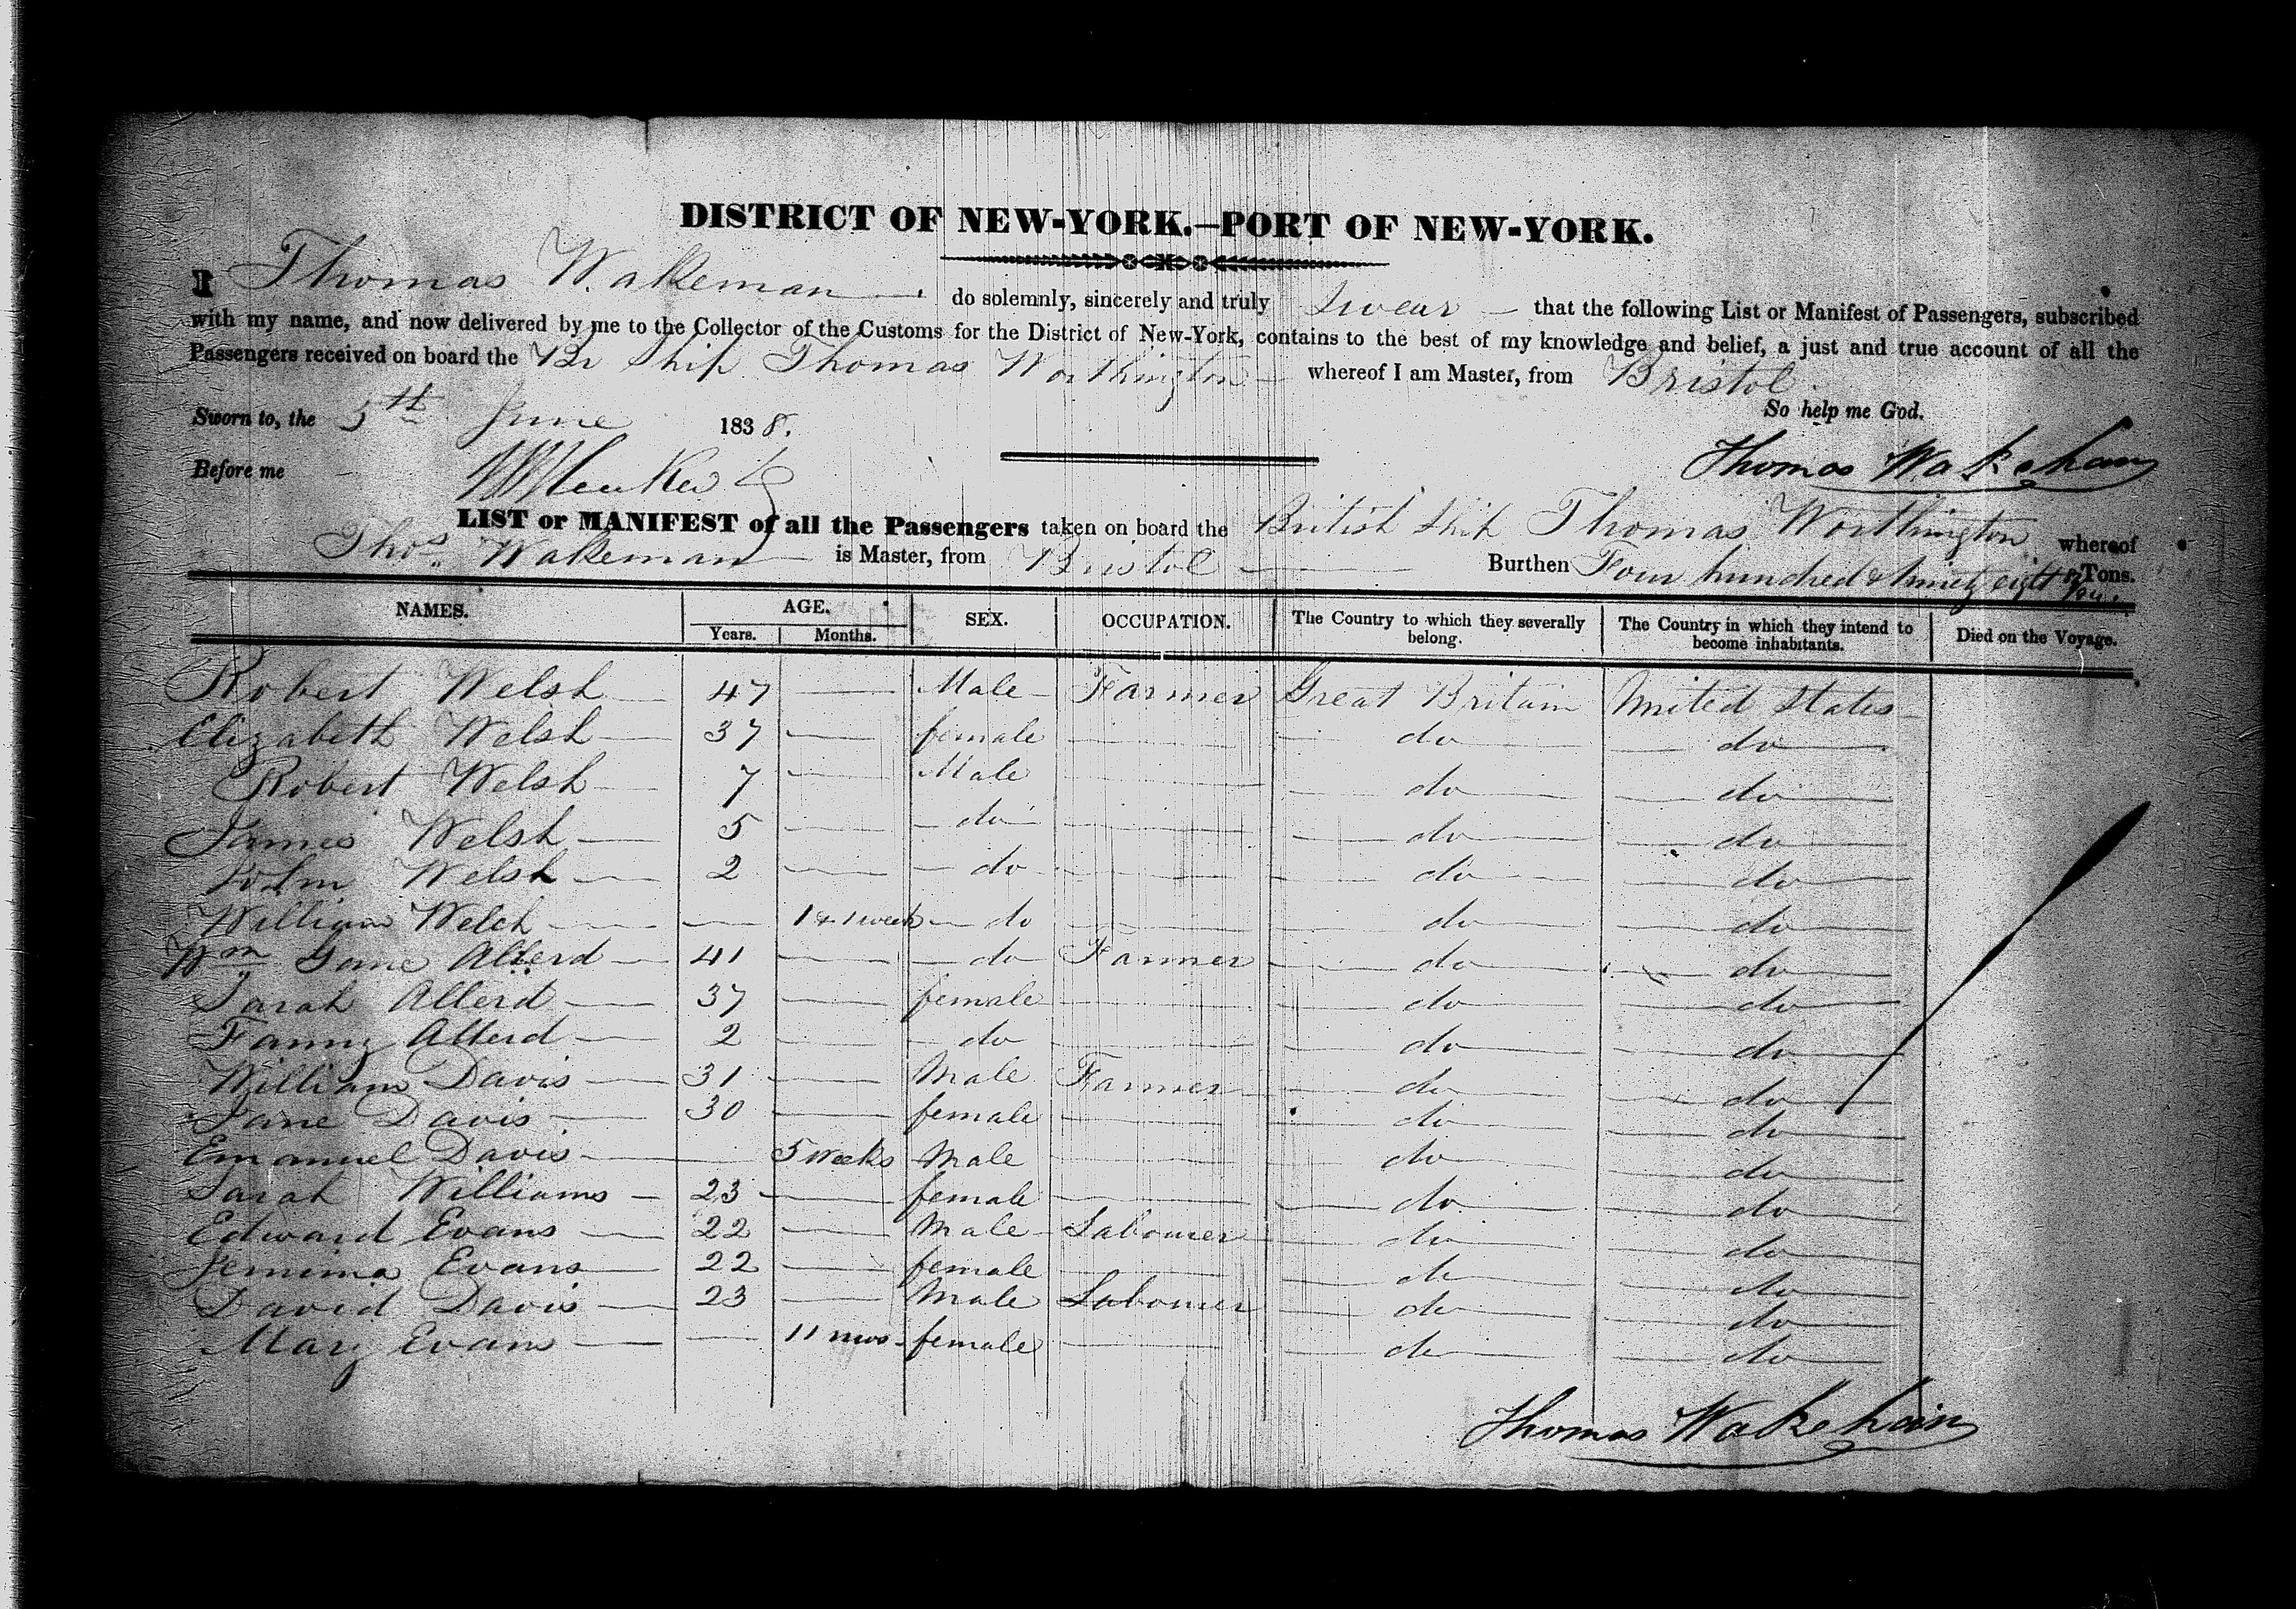 DISTRICT OF NEW-YORK.—PORT OF NEW-YORK.
I Thomas Wakeman do solemnly, sincerely and truly Swear — that the following List or Manifest of Passengers, subscribed
with my name, and now delivered by me to the Collector of the Customs for the District of New-York, contains to the best of my knowledge and belief, a just and true account of all the
Passengers received on board the Br Ship Thomas Worthington whereof I am Master, from Bristol.
So help me God.
Sworn to, the 5th June 1838.
Thomas Wakeham
Before me
LIST or MANIFEST of all the Passengers taken on board the British Ship Thomas Worthington whereof
Thos. Wakeman is Master, from Bristol Burthen Four hundred & ninety eight Tons.
NAMES. AGE. SEX. OCCUPATION. The Country to which they severally belong. The Country in which they intend to become inhabitants. Died on the Voyage.
Years. Months.
Robert Welsh 47 — Male Farmer Great Britain United States
Elizabeth Welsh 37 — female — do do
Robert Welsh 7 — Male — do do
James Welsh 5 — do — do do
John Welsh 2 — do — do do
William Welch — 1 & 1 week do — do do
Wm Allerd 41 — do Farmer do do
Sarah Allerd 37 — female — do do
Fanny Allerd 2 — do — do do
William Davis 31 — Male Farmer do do
Jane Davis 30 — female — do do
Emanuel Davis — 5 weeks Male — do do
Sarah Williams 23 — female — do do
Edward Evans 22 — Male Labourer do do
Jemima Evans 22 — female — do do
David Davis 23 — Male Labourer do do
Mary Evans — 11 mos female — do do
Thomas Wakeham